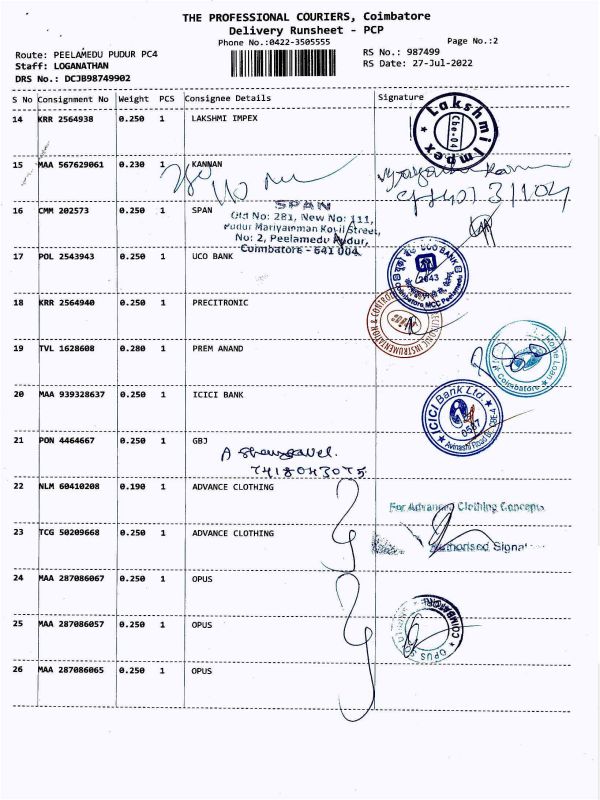 THE PROFESSIONAL COURIERS, Coimbatore
Delivery Runsheet - PCP
Phone No.:0422-3505555
Page No.:2
Route: PEELAMEDU PUDUR PC4
RS No.: 987499
Staff: LOGANATHAN
RS Date: 27-Jul-2022
DRS No.: DCJB98749902
S No Consignment No Weight PCS Consignee Details Signature
14 KRR 2564938 0.250 1 LAKSHMI IMPEX
Lakshmi Impex
15 MAA 567629061 0.230 1 KANNAN
16 CMM 202573 0.250 1 SPAN
SPAN
Old No: 281, New No: 111,
Pudur Mariyamman Kovil Street,
No: 2, Peelamedu Pudur,
Coimbatore - 641 004
17 POL 2543943 0.250 1 UCO BANK
UCO BANK
2043
Coimbatore MCC Peelamedu
18 KRR 2564940 0.250 1 PRECITRONIC
INSTRUMENTATION & CONTROL
19 TVL 1628608 0.280 1 PREM ANAND
Home Loan
Coimbatore
20 MAA 939328637 0.250 1 ICICI BANK
ICICI Bank Ltd.
0587
Avinashi Road Br. CBE-4
21 PON 4464667 0.250 1 GBJ
7418043075
22 NLM 60410208 0.190 1 ADVANCE CLOTHING
For Advanced Clothing Concepts
23 TCG 50209668 0.250 1 ADVANCE CLOTHING
Authorised Signat
24 MAA 287086067 0.250 1 OPUS
25 MAA 287086057 0.250 1 OPUS
OPUS
COIMBATORE
26 MAA 287086065 0.250 1 OPUS